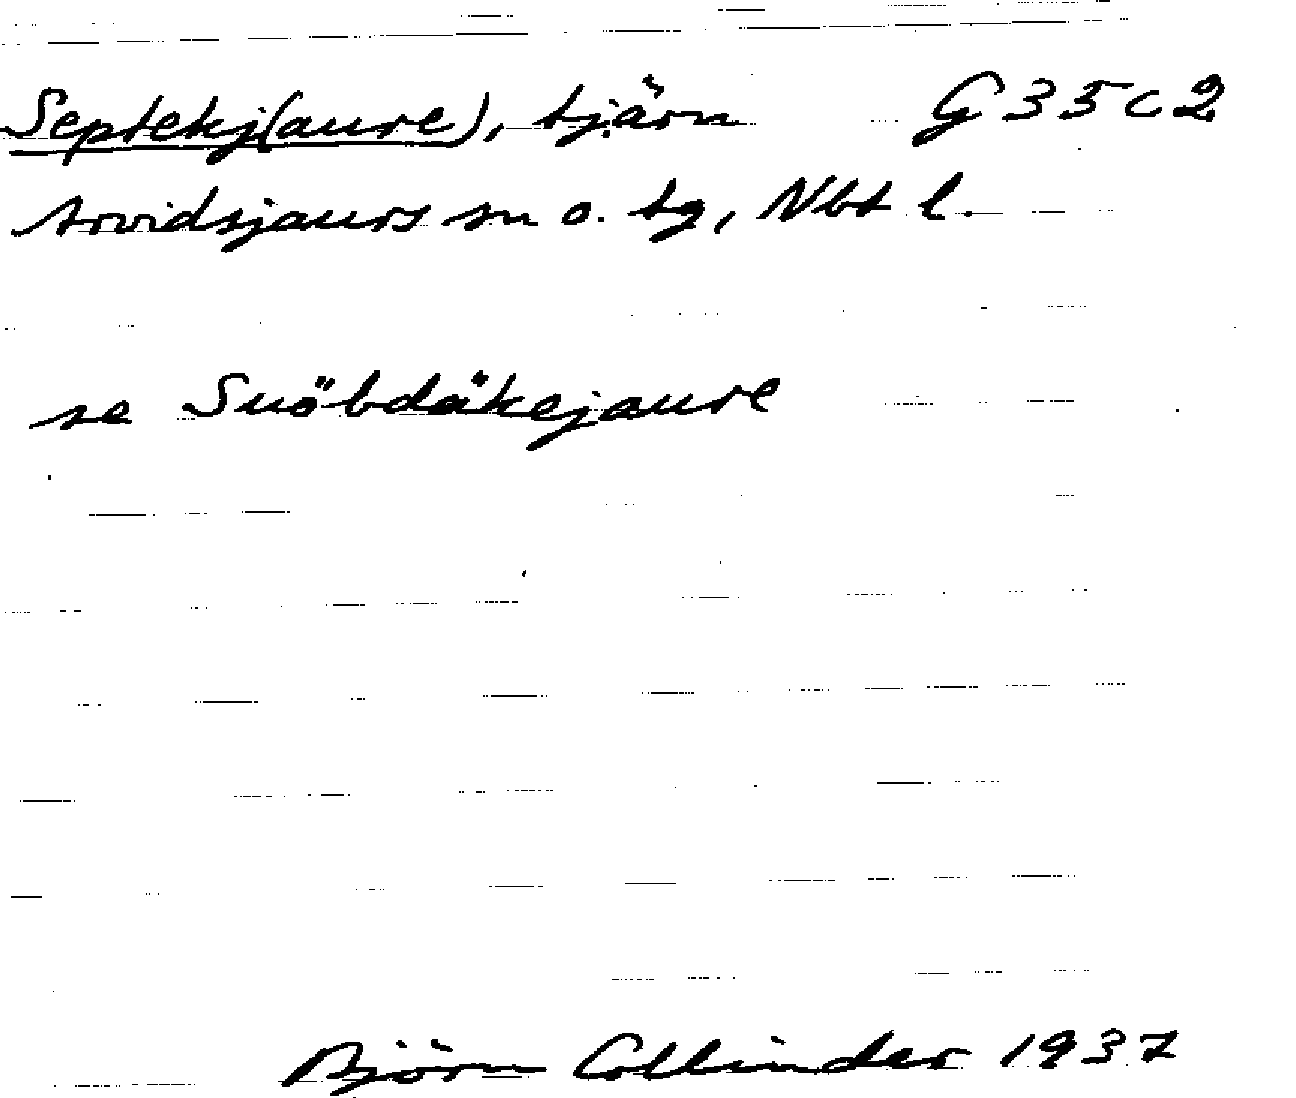 Septekj(aure), tjärn G 35 c 2
Arvidsjaurs sn o. tg, Nbt l.
se Suöbdäkejaure
Björn Collinder 1937